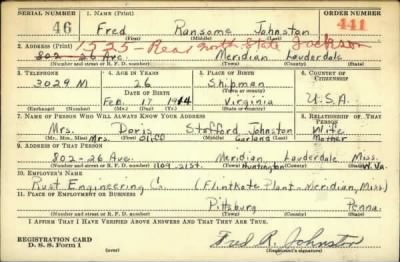 SERIAL NUMBER 1. NAME (Print) ORDER NUMBER
46 Fred Ransome Johnston 441
(First) (Middle) (Last)
2. ADDRESS (Print) 1535-Rear North State Jackson
802-26 Ave. Meridian Lauderdale
(Number and street or R. F. D. number) (Town) (County) (State)
3. TELEPHONE 4. AGE IN YEARS 5. PLACE OF BIRTH 6. COUNTRY OF CITIZENSHIP
3029 M 26 Shipman
DATE OF BIRTH
Feb. 17 1914 Virginia U.S.A.
(Exchange) (Number) (Mo.) (Day) (Yr.) (State or country)
7. NAME OF PERSON WHO WILL ALWAYS KNOW YOUR ADDRESS 8. RELATIONSHIP OF THAT PERSON
Mrs. Doris Stafford Johnston Wife
Mrs. Garland Mother
(Mr., Mrs., Miss) (First) (Middle) (Last)
9. ADDRESS OF THAT PERSON
802-26 Ave. Meridian Lauderdale Miss.
1109-21st. Huntington W. Va.
(Number and street or R. F. D. number) (Town) (County) (State)
10. EMPLOYER'S NAME
Rust Engineering Co. (Flintkote Plant-Meridian, Miss)
11. PLACE OF EMPLOYMENT OR BUSINESS
Pittsburg Penna.
(Number and street or R. F. D. number) (Town) (County) (State)
I AFFIRM THAT I HAVE VERIFIED ABOVE ANSWERS AND THAT THEY ARE TRUE.
REGISTRATION CARD
D. S. S. Form 1 Fred R. Johnston